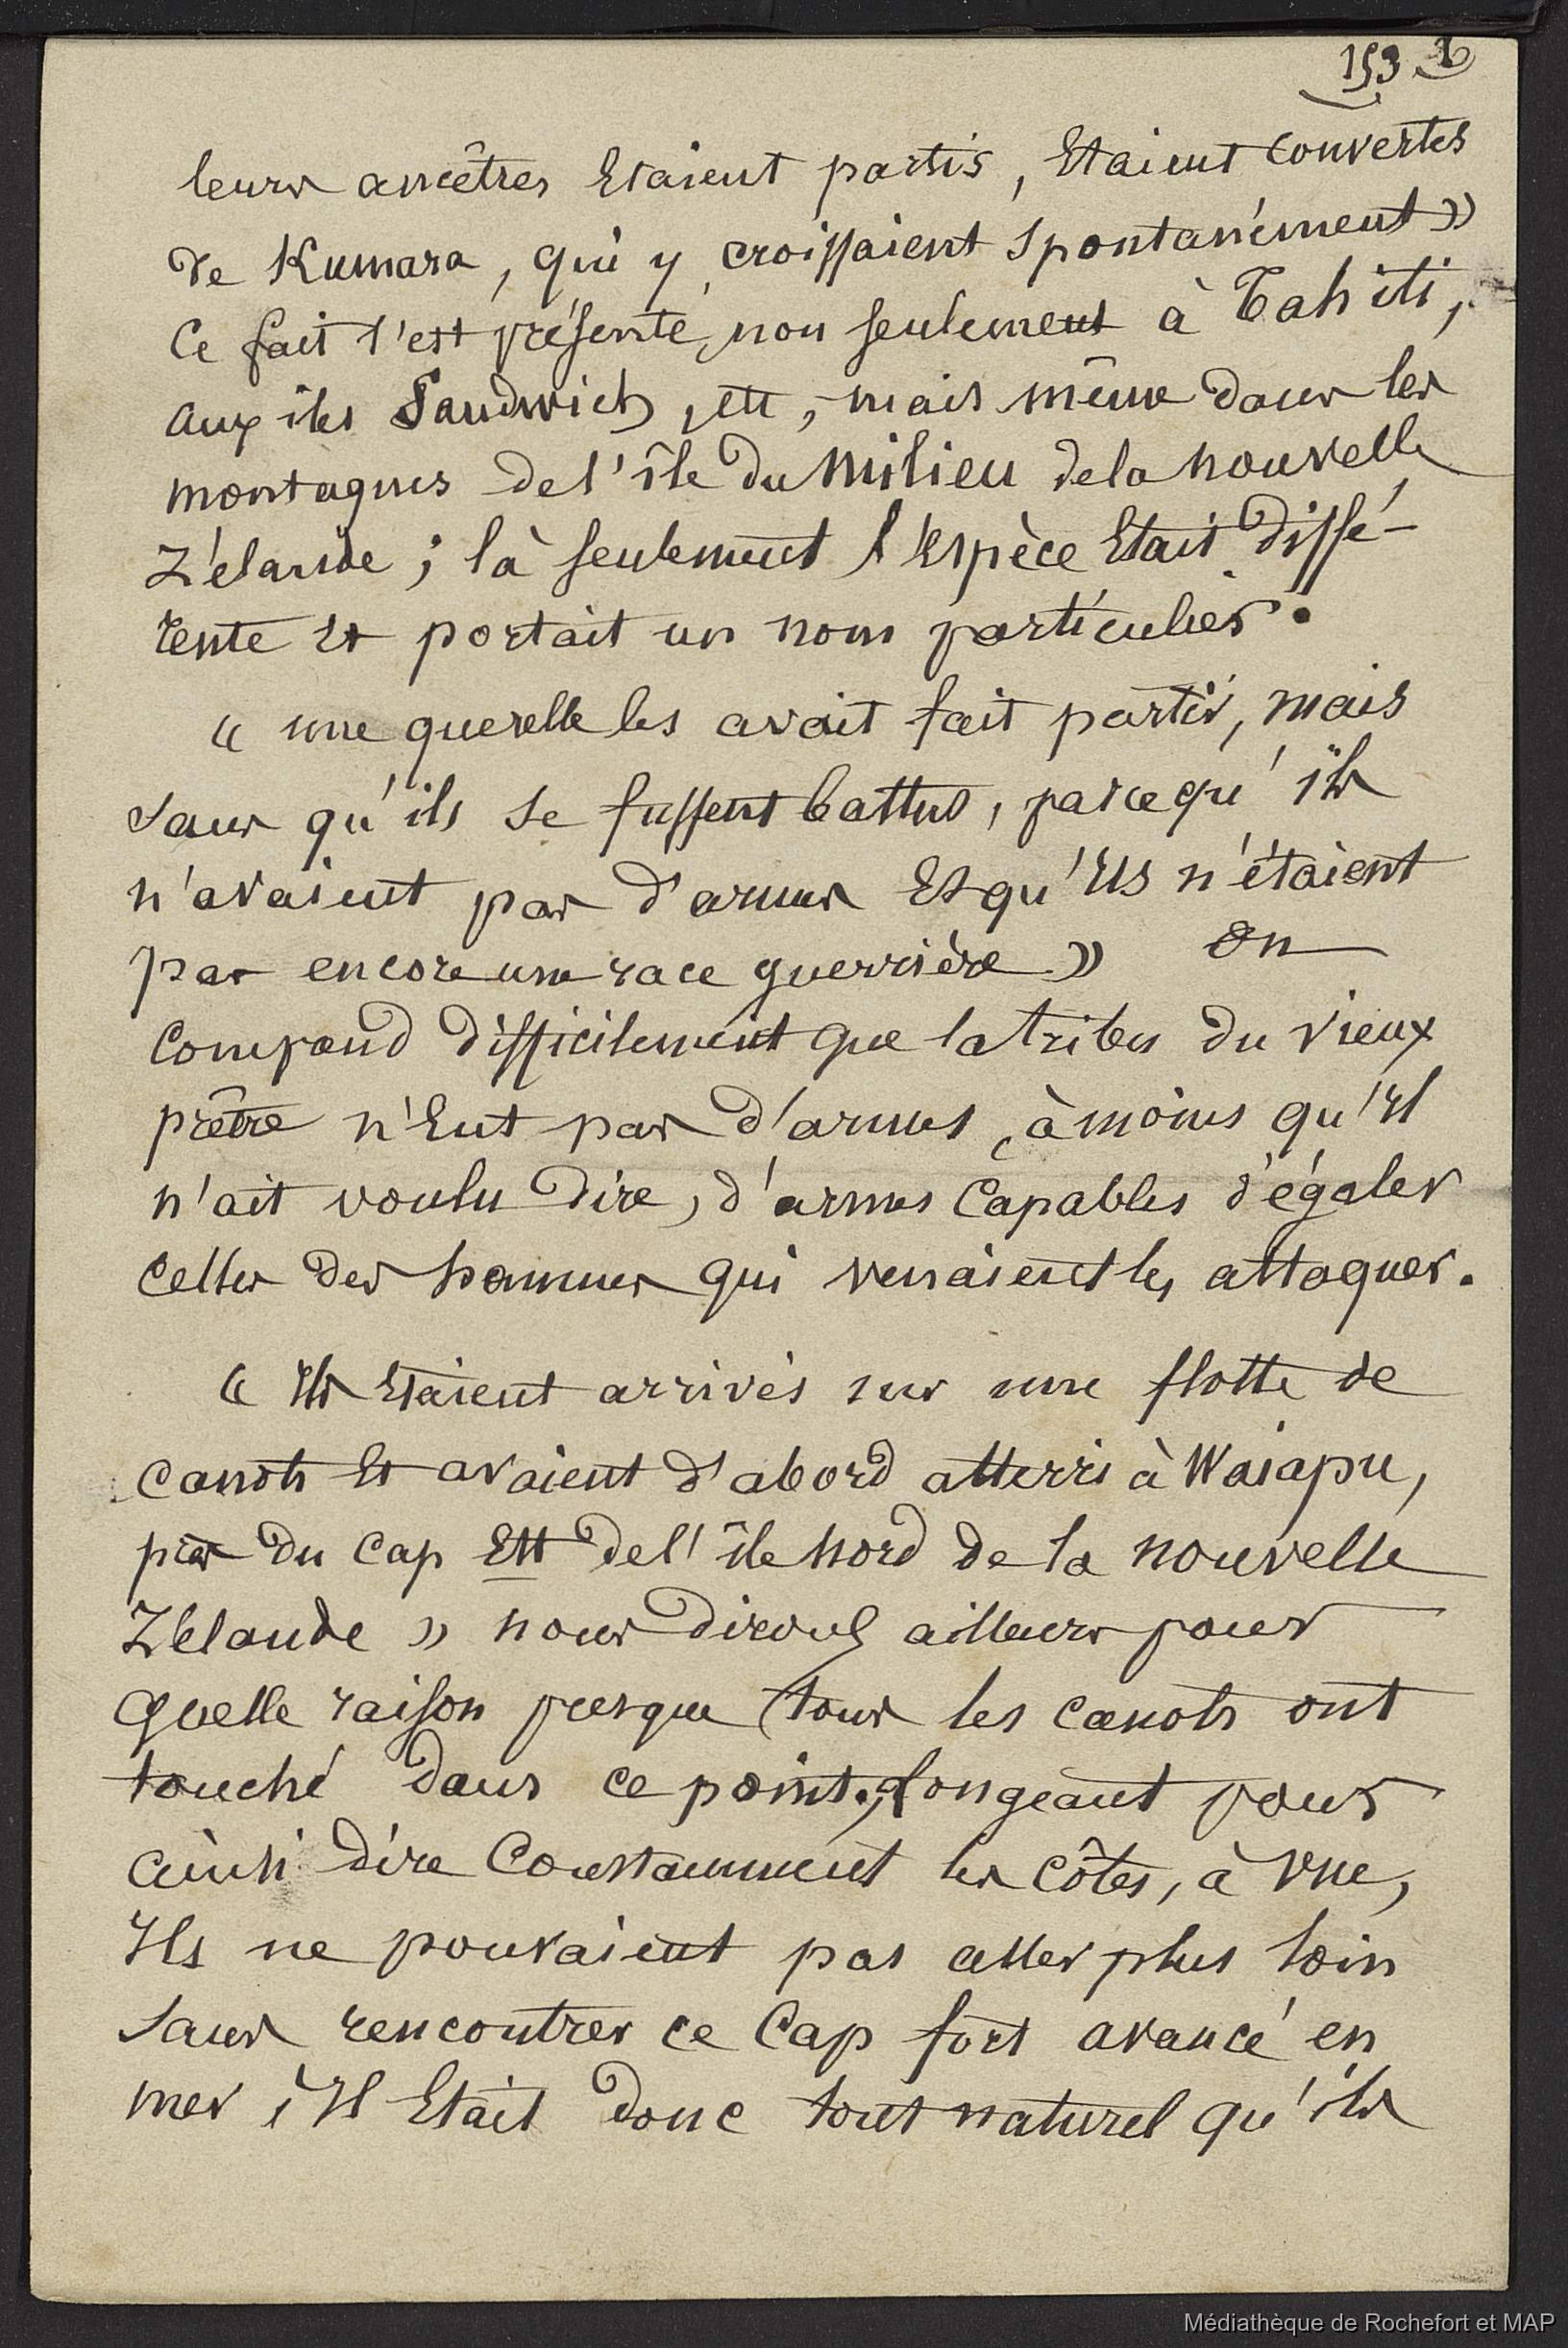 153
leurs ancêtres Etaient partis, Etaient couvertes
de Kumara, qui y croissaient spontanément »
Ce fait s'est présenté, non seulement à Tahiti,
aux îles Sandwich, etc, mais même dans les
montagnes de l'île du Milieu de la nouvelle
Zélande; là seulement l'Espèce Etait diffé-
rente Et portait un nom particulier.
« une querelle les avait fait partir, mais
sans qu'ils se fussent battus, parcequ'ils
n'avaient pas d'armes Et qu'Ils n'étaient
pas encore une race guerrière » On
comprend difficilement que la tribu du vieux
prêtre n'Eut pas d'armes, à moins qu'Il
n'ait voulu dire, d'armes Capables d'égaler
celles des hommes qui venaient les attaquer.
« Ils Etaient arrivés sur une flotte de
canots Et avaient d'abord atterri à Waiapu,
près du Cap Est de l'île Nord de la nouvelle
Zélande » nous dirons ailleurs pour
quelle raison presque tous les canots ont
touché dans ce point; longeant pour
ainsi dire Constamment les côtes, à vue,
Ils ne pouvaient pas aller plus loin
sans rencontrer ce Cap fort avancé en
mer; Il Etait donc tout naturel qu'ils
Médiathèque de Rochefort et MAP